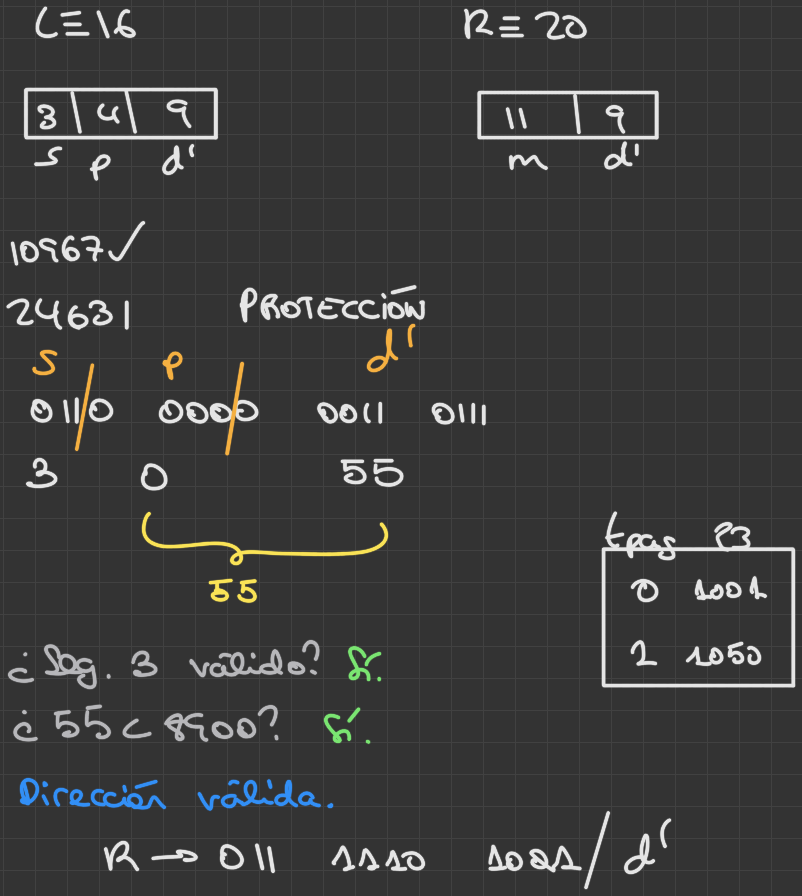 L≡16 R≡20
3 4 9 11 9
s p d' m d'
10967✓
24631 PROTECCIÓN
s p d'
011/0 0000 0011 0111
3 0 55
55
tpag P3
0 1001
1 1050
¿Seg. 3 válido? Sí.
¿55 < 8900? Sí.
Dirección válida.
R → 011 1110 1001/d'